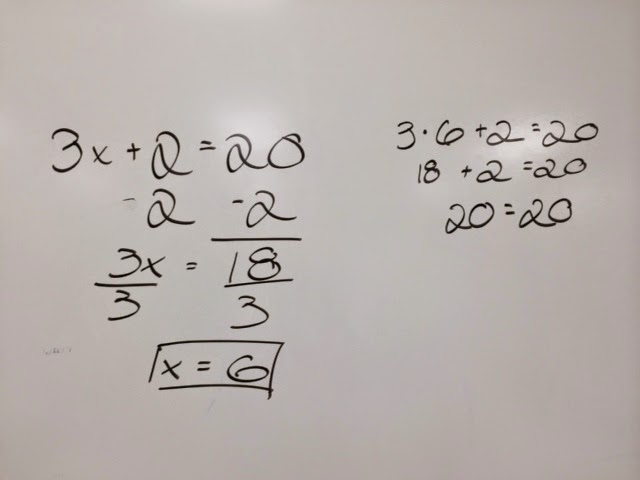 3x + 2 = 20
- 2 - 2
3x = 18
3 3
x = 6
3 · 6 + 2 = 20
18 + 2 = 20
20 = 20